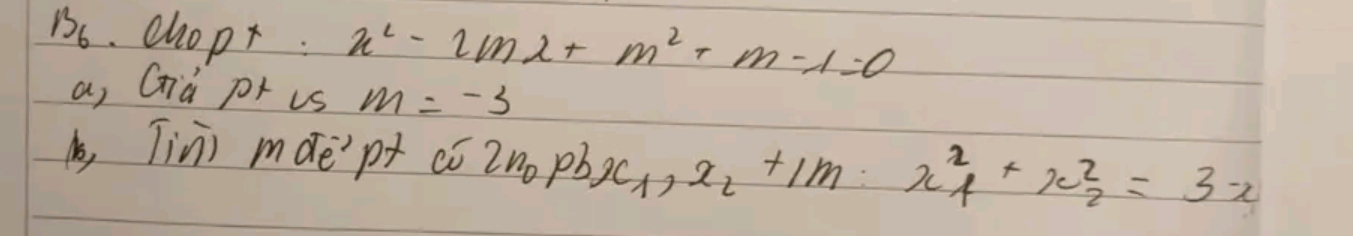 B6. Cho pt : x² - 2mx + m² + m - 1 = 0
a, Giả pt vs m = -3
b, Tìm m để pt có 2n₀ pb x₁, x₂ +/m : x₁² + x₂² = 3-x